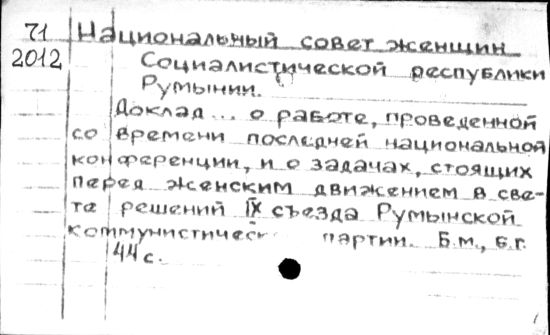 71 Национальный совет женщин
2012 Социалистической республики
Румынии.
Доклад... о работе, проведенной
со времени последней национальной
конференции, и о задачах, стоящих
перед женским движением в све-
те решений IX съезда Румынской
коммунистическ партии. Б.м., б.г.
44 с.